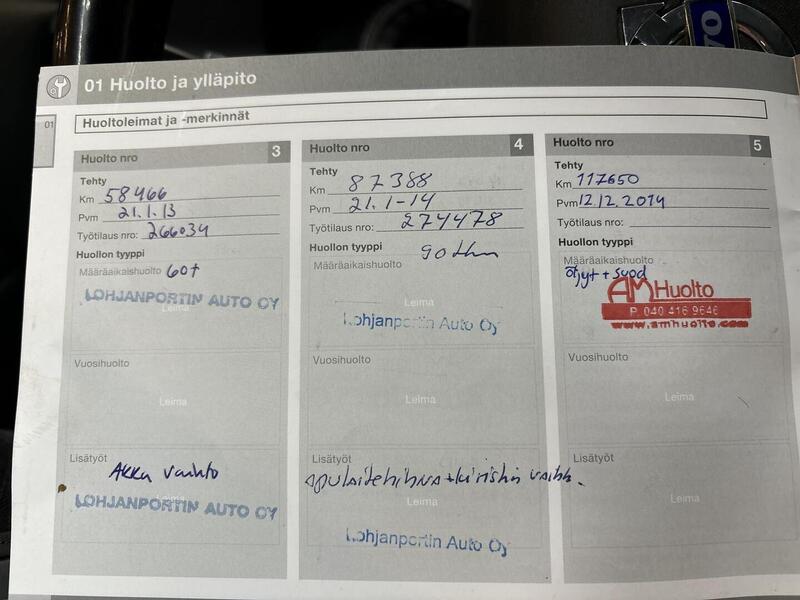 VO
01 Huolto ja ylläpito
01
Huoltoleimat ja -merkinnät
Huolto nro 3
Tehty
Km 58466
Pvm 21.1.13
Työtilaus nro: 266034
Huollon tyyppi
Määräaikaishuolto 60t
Leima
LOHJANPORTIN AUTO OY
Vuosihuolto
Leima
Lisätyöt
Akku vaihto
Leima
LOHJANPORTIN AUTO OY
Huolto nro 4
Tehty
Km 87388
Pvm 21.1-14
Työtilaus nro: 274478
Huollon tyyppi
90 tkm
Määräaikaishuolto
Leima
Lohjanportin Auto Oy
Vuosihuolto
Leima
Lisätyöt
apulaitehihna+kiristin vaihd.
Leima
Lohjanportin Auto Oy
Huolto nro 5
Tehty
Km 117650
Pvm 12.12.2014
Työtilaus nro:
Huollon tyyppi
Määräaikaishuolto
öljyt + suod
AM Huolto
P. 040 416 9646
www.amhuolto.com
Vuosihuolto
Leima
Lisätyöt
Leima